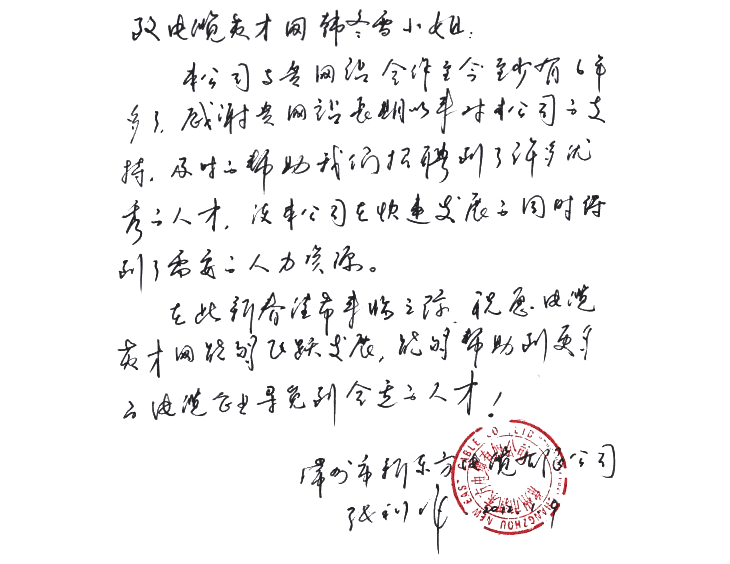 致电缆英才网韩冬雪小姐:
本公司与贵网站合作至今至少有6年
多了,感谢贵网站长期以来对本公司之支
持,及时之帮助我们招聘到了许多优
秀之人才,使本公司在快速发展之同时得
到了需要之人力资源。
在此新春佳节来临之际,祝愿电缆
英才网能够飞跃发展,能够帮助到更多
之电缆企业寻觅到合适之人才!
常州市新东方电缆有限公司
CHANGZHOU NEW EAS CABLE CO.,LTD